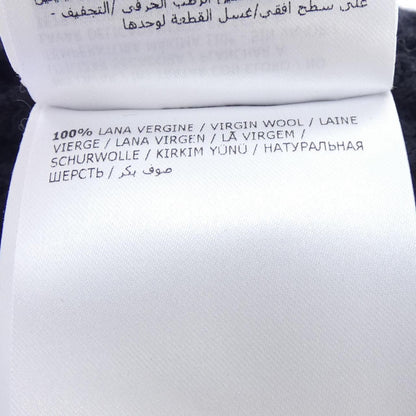 على سطح أفقي/غسل القطعة لوحدها
100% LANA VERGINE / VIRGIN WOOL / LAINE
VIERGE / LANA VIRGEN / LÃ VIRGEM /
SCHURWOLLE / KIRKIM YÜNÜ / НАТУРАЛЬНАЯ
ШЕРСТЬ / صوف بكر